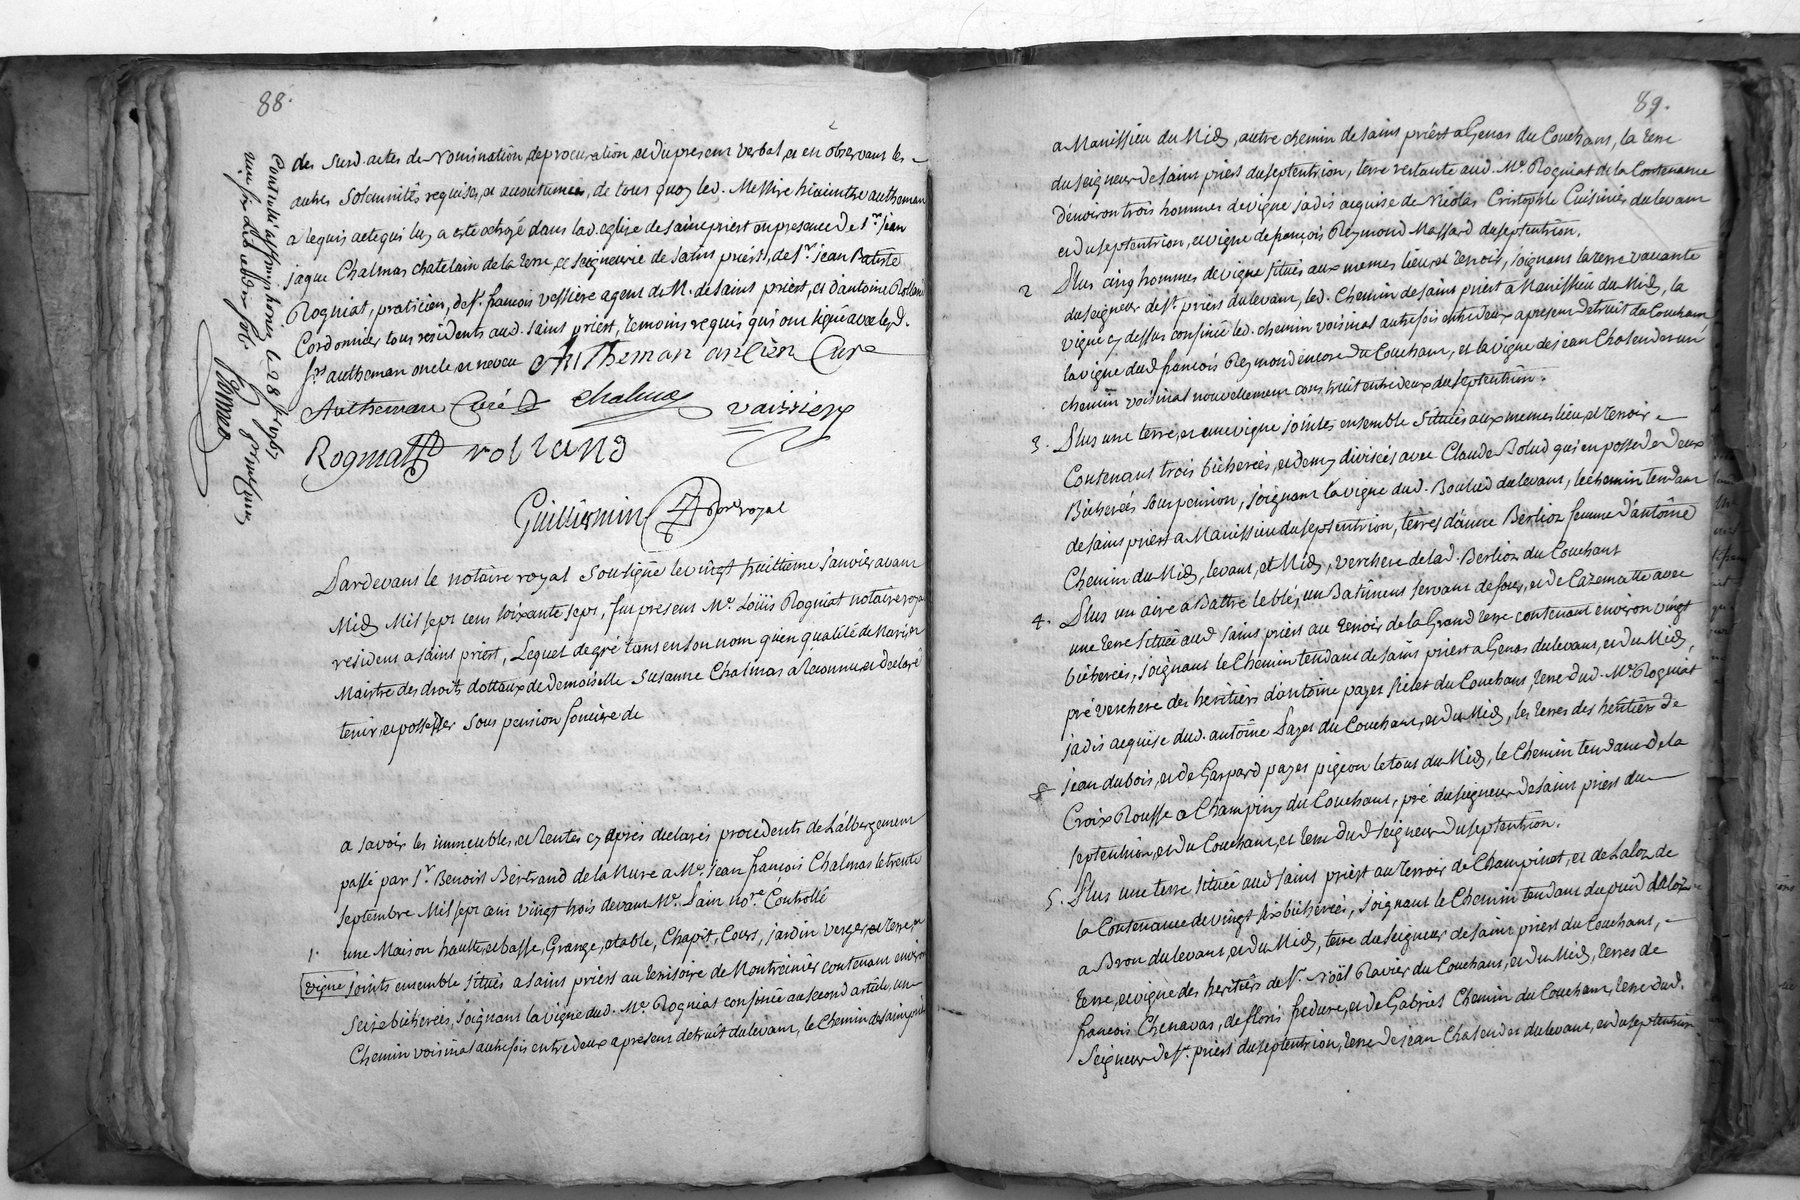 88.
des susd. actes de Nomination, de procuration, et du present verbal, et en observant les
autres Solemnités requises, et accoutumées, de tous quoy led. Messire hiacinthe autheman
a requis acte qui luy a esté octroyé dans lad. eglise de saint priest en presence de Sr. jean
jaque Chalmas chatelain de la terre, et seigneurie de saint priest, de Sr. jean Batiste
Rogniat, praticien, de Sr. françois vessiere agent de M. de saint priest, et d'antoine Rolland
Cordonnier tous residents aud. saint priest, temoins requis qui ont signé avec lesd.
Srs. autheman oncle et neveu Autheman ancien Curé
Autheman Curé chalmas vaissiere
Rogniat rolland
Guillermin Nore. royal
Controllé a st. Simphorien le 28 1767
Pardevant le notaire royal sousigné le vingt huitieme janvier avant
Midy Mil sept cens soixante sept, fut present Me. Loüis Rogniat notaire royal
resident a saint priest, Lequel de gré tant en son nom qu'en qualité de Mary, et
Maistre des droits dottaux de demoiselle Susanne Chalmas a reconnu et declaré
tenir, et posseder sous pension fonciere de
a savoir les immeubles, et Rentes cy aprés declarés procedents de L'albergement
passé par Sr. Benoist Bertrand de la Mure a Me. jean françois Chalmas le trente
septembre Mil sept cens vingt trois devant Me. Sain nore. Controllé
1. une Maison haulte, et basse, Grange, etable, Chapit, Cours, jardin verger, et terre, et
vigne joints ensemble situés a saint priest au territoire de Montreinier contenant environ
seize bicherées, joignant la vigne dud. Me. Rogniat confinée au second article, un
Chemin voisinal autrefois entredeux apresent detruit du levant, le Chemin de saint priest
89.
a Manissieu du Midy, autre chemin de saint priest a Genas du Couchant, la terre
du seigneur de saint priest du septentrion, terre restante aud. Me. Rogniat de la Contenance
d'environ trois hommes de vigne jadis acquise de Nicolas Cristophle Cuisinier du levant
et du septentrion, et vigne de françois Reymond Massard du septentrion.
2 Plus cinq hommes de vigne situés aux memes lieu, et terroir, joignant la terre vacante
du seigneur de St. priest du levant, led. Chemin de saint priest a Manissieu du Midy, la
vigne cy dessus confinée led. chemin voisinal autrefois entredeux apresent detruit du Couchant,
la vigne dud. françois Reymond encore du Couchant, et la vigne de jean Chatendet un
chemin voisinal nouvellement construit entredeux du septentrion.
3. Plus une terre, et une vigne jointes ensemble situées aux memes lieu, et terroir
Contenant trois bicherées, et demy divisées avec Claude Bolud qui en possede deux
Bicherées sous pension, joignant la vigne dud. Boulud du levant, le chemin tendant
de saint priest a Manissieu du septentrion, terres d'anne Berlioz femme d'antoine
Chemin du Midy, levant, et Midy, verchere de lad. Berlioz du Couchant
4. Plus un aire a Battre le blé, un Batiment servant de four, et de Cazematte avec
une terre située aud. saint priest au terroir de la Grand terre contenant environ vingt
bicherées, joignant le Chemin tendant de saint priest a Genas du levant, et du Midy,
pré verchere des heritiers d'antoine payet du Couchant, terre dud. Me. Rogniat
jadis acquise dud. antoine Payet du Couchant, et du Midy, les terres des heritiers de
jean dubois, et de Gaspard payet pigeon le tout du Midy, le Chemin tendant de la
Croix Rousse a Champiny du Couchant, pré du seigneur de saint priest du
septentrion, et du Couchant, et terre dud. seigneur du septentrion.
5. Plus une terre située aud. saint priest au terroir de Champinot, et de Laloz de
la Contenance de vingt six bicherées, joignant le Chemin tendant du puid
a Bron du levant, et du Midy, terre du seigneur de saint priest du Couchant,
terre, et vigne des heritiers de Sr. Noël Ravier du Couchant, et du Midy, terres de
françois Chenavas, de floris fredure, et de Gabriel Chemin du Couchant, terre dud.
Seigneur de St. priest du septentrion, terre de jean Chatendet du levant, et du septentrion